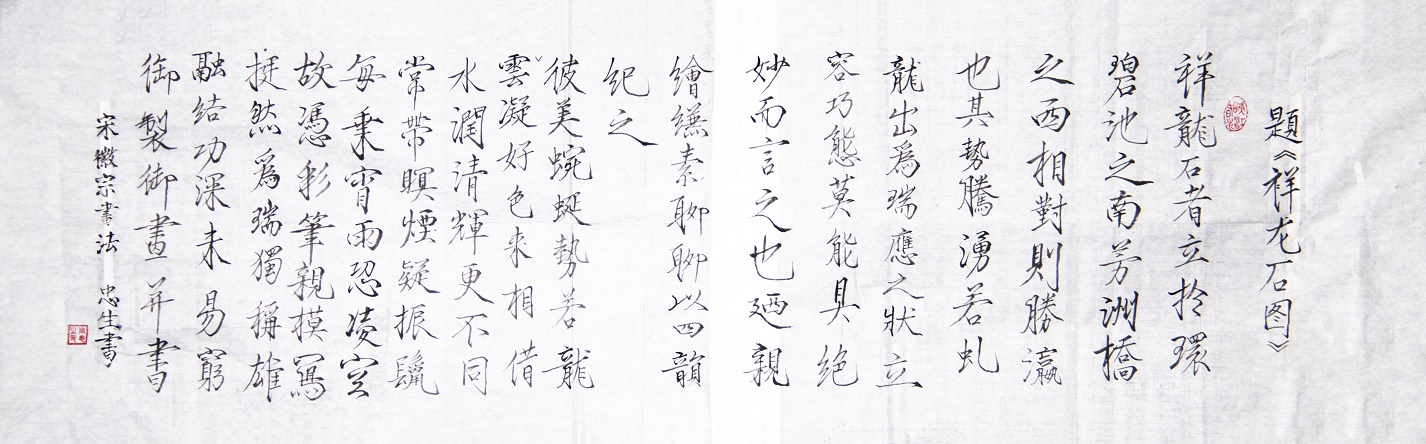 題《祥龙石图》
祥龍石者立於環
碧池之南芳洲橋
之西相對則勝瀛
也其勢騰湧若虬
龍出爲瑞應之狀立
容巧態莫能具絕
妙而言之也廼親
繪縑素聊聊以四韻
紀之
彼美蜿蜒勢若龍
雲凝好色来相借
水潤清輝更不同
常帶暝煙疑振鬣
每乘宵雨恐凌空
故憑彩筆親模寫
挺然爲瑞獨稱雄
融結功深未易窮
御製御畫并書
宋徽宗書法 忠生書